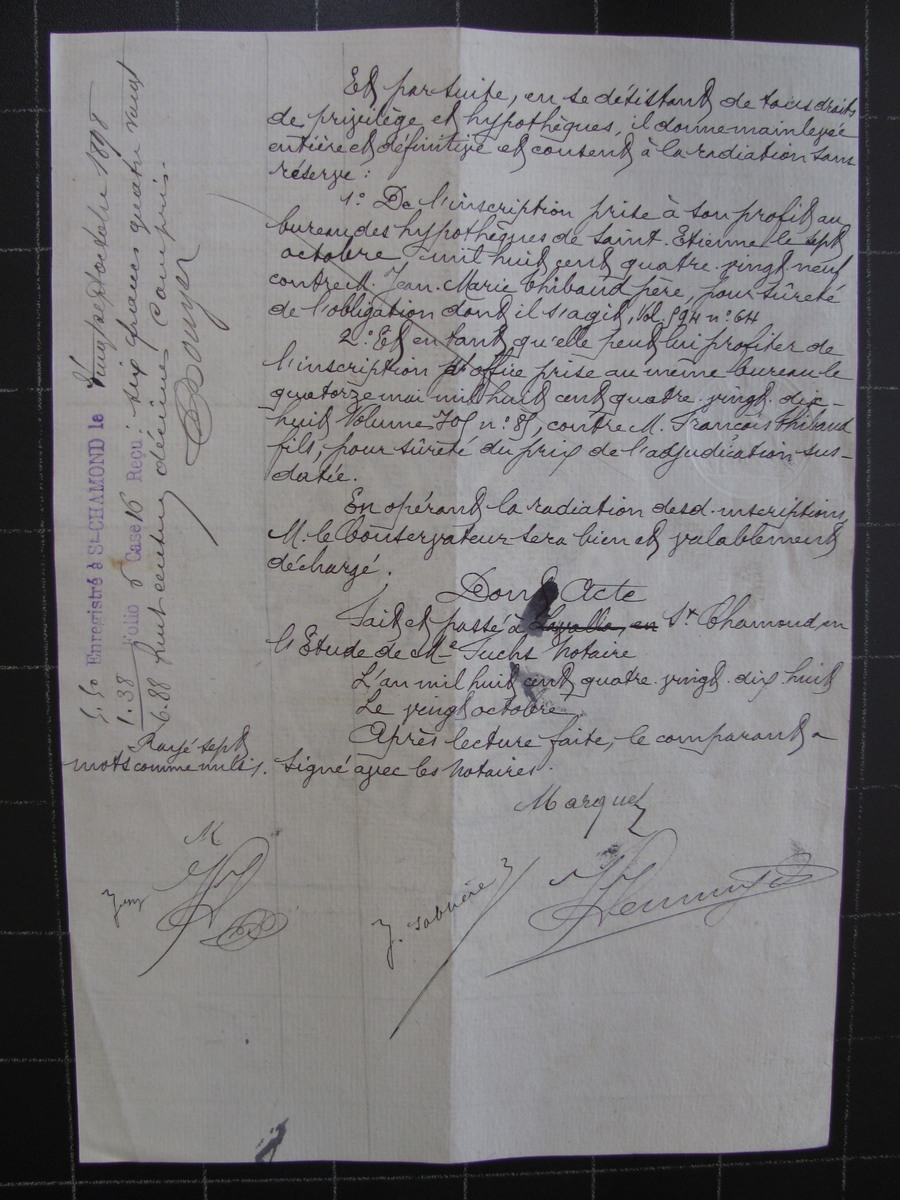 Et par suite, en se désistant de tous droits
de privilège et hypothèques, il donne mainlevée
entière et définitive et consent à la radiation sans
réserve :
1º De l'inscription prise à son profit au
bureau des hypothèques de Saint-Etienne le sept
octobre mil huit cent quatre-vingt neuf
contre M. Jean-Marie Thibaud père, pour sûreté
de l'obligation dont il s'agit, Vol. 594 nº 64
2º Et en tant qu'elle peut lui profiter de
l'inscription d'office prise au même bureau le
quatorze mai mil huit cent quatre-vingt-dix-
huit Volume nº 85, contre M. François Thibaud
fils, pour sûreté du prix de l'adjudication sus-
datée.
En opérant la radiation desd. inscriptions
M. le Conservateur sera bien et valablement
déchargé.
Dont Acte
Fait et passé à Lavalla, en St Chamond, en
l'Etude de Me Fuchs Notaire
L'an mil huit cent quatre-vingt-dix huit
Le vingt octobre
Après lecture faite, le comparant a
signé avec les Notaires.
Rayé sept
mots comme nuls.
Marquet
J. Sabrière
Enregistré à St-CHAMOND le vingt sept octobre 1898
Folio 8 Case 16 Reçu : six francs quatre vingt
huit centimes décimes compris.
5.50
1.38
6.88
M